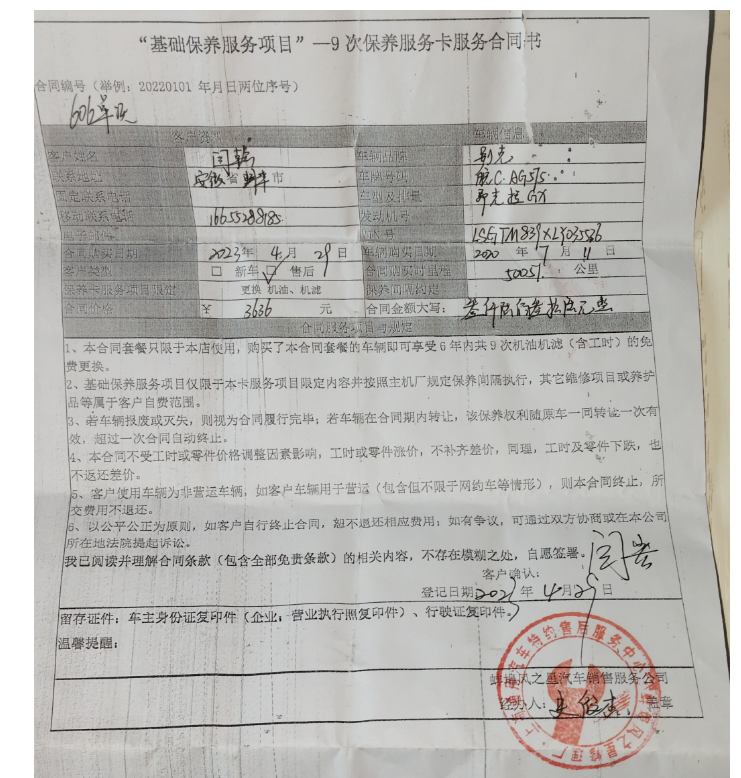 “基础保养服务项目”—9 次保养服务卡服务合同书
合同编号（举例：20220101 年月日两位序号）
客户资料 车辆信息
客户姓名 车辆品牌 别克
联系地址 安徽省蚌埠市 车牌号码 皖C·AG515
固定联系电话 车型及排量
移动联系电话 16655288185 发动机号
电子邮件
合同购买日期 2023年 4月 29日 车辆购买日期 2020 年 7月 11日
客户类型 □ 新车 □ 售后 合同购买时里程 50051 公里
保养卡服务项目限定 更换 机油、机滤 保养间隔约定
合同价格 ￥ 3636 元 合同金额大写：
合同服务项目与规定
1、本合同套餐只限于本店使用，购买了本合同套餐的车辆即可享受 6 年内共 9 次机油机滤（含工时）的免
费更换。
2、基础保养服务项目仅限于本卡服务项目限定内容并按照主机厂规定保养间隔执行，其它维修项目或养护
品等属于客户自费范围。
3、若车辆报废或灭失，则视为合同履行完毕；若车辆在合同期内转让，该保养权利随原车一同转让一次有
效，超过一次合同自动终止。
4、本合同不受工时或零件价格调整因素影响，工时或零件涨价，不补齐差价，同理，工时及零件下跌，也
不返还差价。
5、客户使用车辆为非营运车辆，如客户车辆用于营运（包含但不限于网约车等情形），则本合同终止，所
交费用不退还。
6、以公平公正为原则，如客户自行终止合同，恕不退还相应费用；如有争议，可通过双方协商或在本公司
所在地法院提起诉讼。
我已阅读并理解合同条款（包含全部免责条款）的相关内容，不存在模糊之处，自愿签署。
客户确认：
登记日期 2023 年 4月29日
留存证件：车主身份证复印件（企业：营业执行照复印件）、行驶证复印件。
温馨提醒：
蚌埠风之星汽车销售服务公司
经办人： 盖章